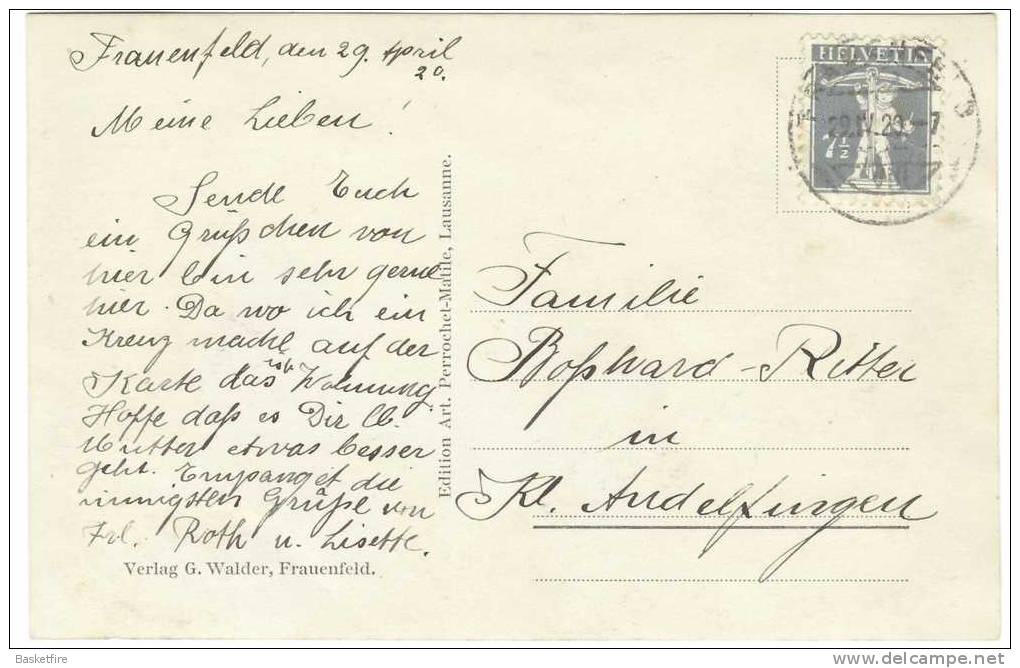 Frauenfeld, den 29. April
20.
Meine Lieben!
Sende Euch
ein Grüßchen von
hier bin sehr gerne
hier. Da wo ich ein
Kreuz mache auf der
Karte das ist Wohnung.
Hoffe daß es Dir lb.
Mutter etwas besser
geht. Empfanget die
innigsten Grüße von
Frl. Roth u. Lisette.
Verlag G. Walder, Frauenfeld.
Edition Art. Perrochet-Matile, Lausanne.
HELVETIA
7½
29.IV.20.-7
Familie
Boßhard-Ritter
in
Kl. Andelfingen
Basketfire
delcampe.net